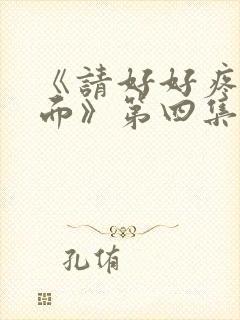 《請好好疼
而》第四集
孔侑